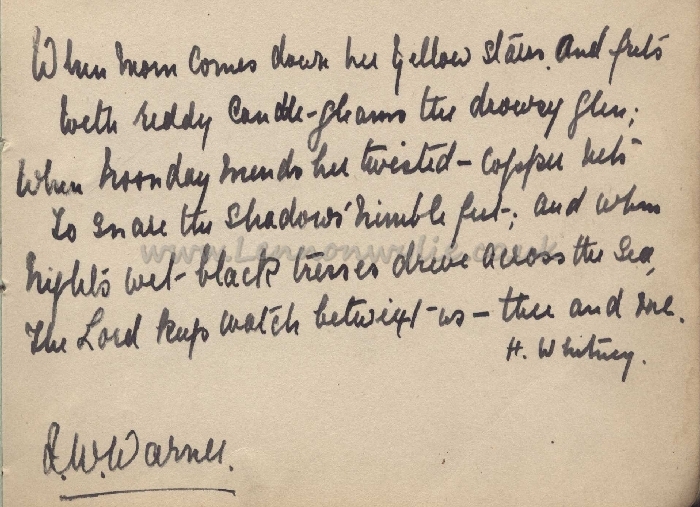 When Morn comes down her yellow stairs and frets
With ruddy Candle-gleams the drowsy glen;
When Noonday mends her twisted-copper nets
To snare the Shadows' nimble feet; and when
Night's wet-black tresses drive across the Sea,
The Lord keep watch betwixt us - thee and me.
H. Whitney.
www.Lennonwylie.co.uk
W. Warner.